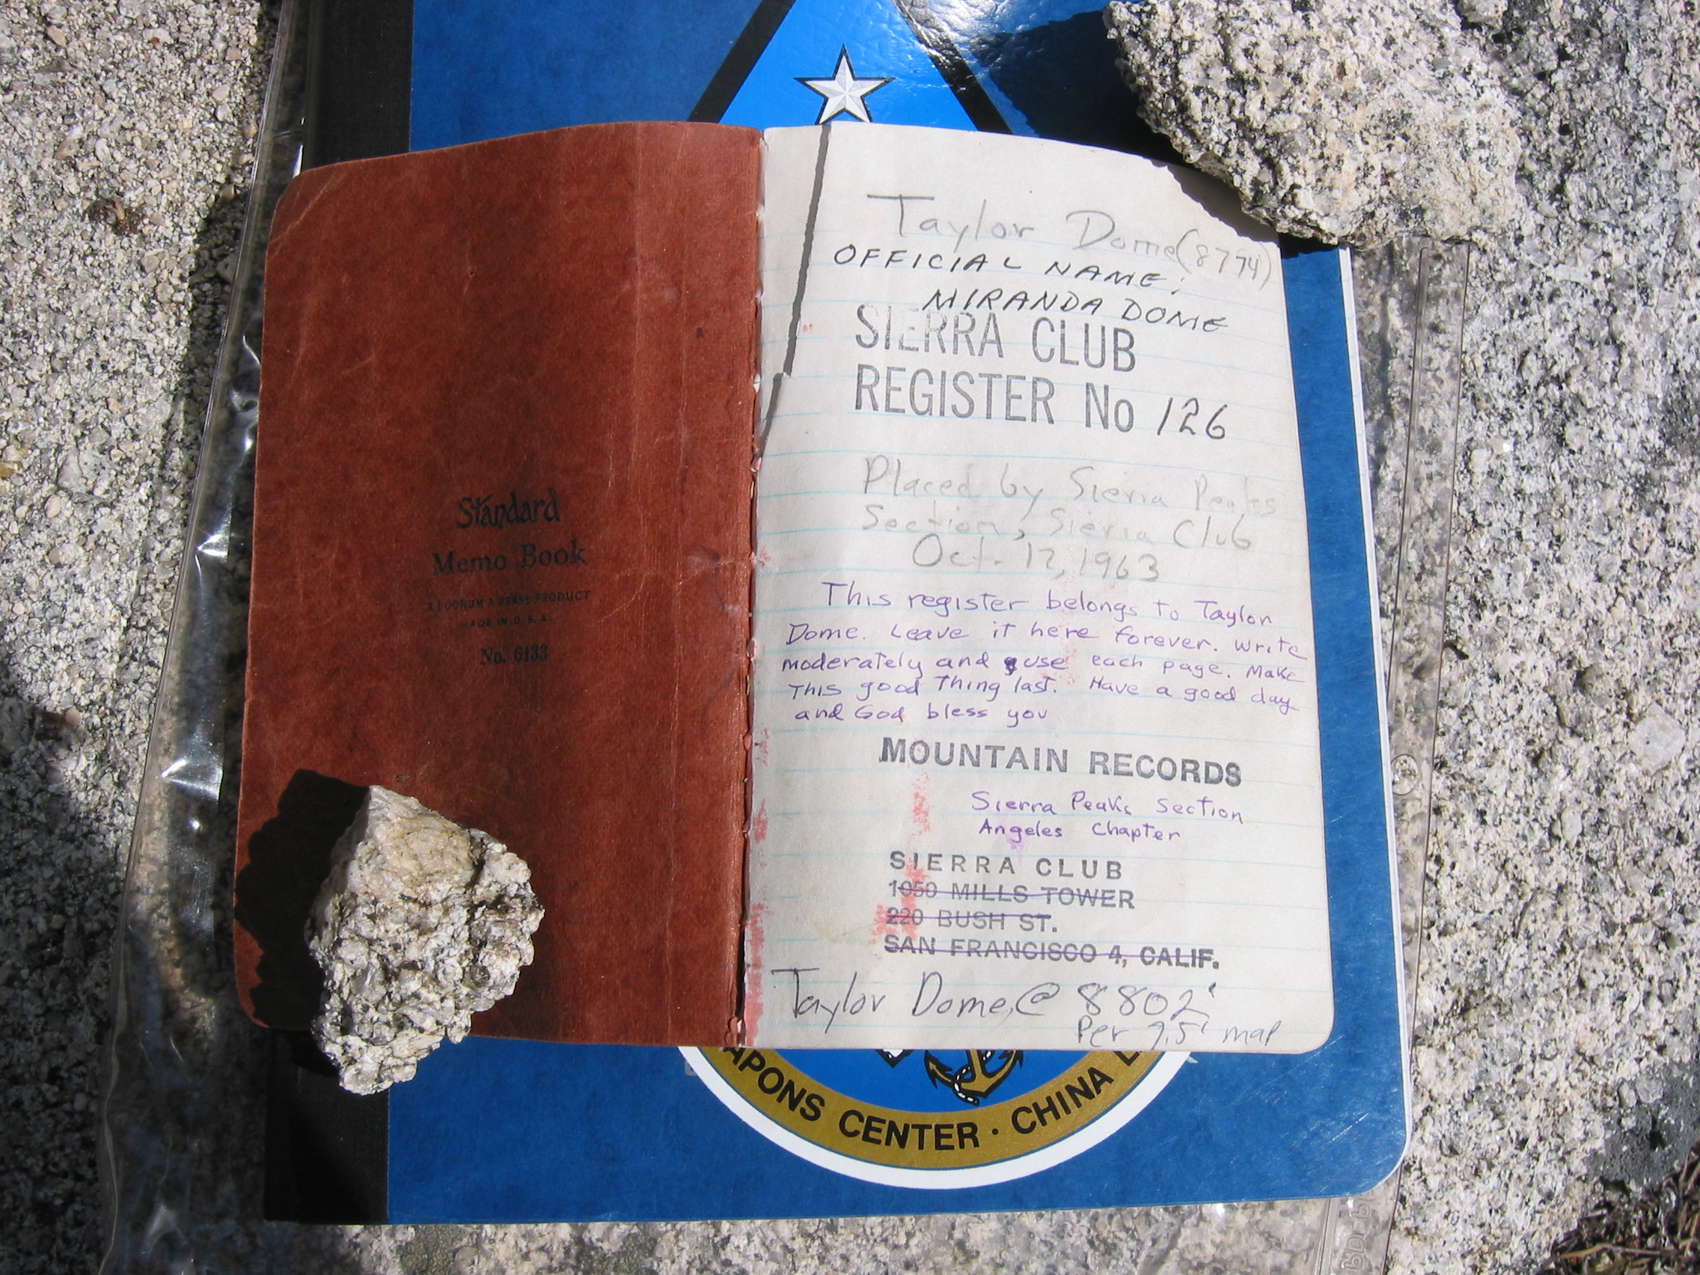 Standard
Memo Book
A BOORUM & PEASE PRODUCT
MADE IN U.S.A.
No. 6133
Taylor Dome (8774)
OFFICIAL NAME:
MIRANDA DOME
SIERRA CLUB
REGISTER No 126
Placed by Sierra Peaks
Section, Sierra Club
Oct. 12, 1963
This register belongs to Taylor
Dome. Leave it here forever. Write
moderately and use each page. Make
This good Thing last. Have a good day
and God bless you
MOUNTAIN RECORDS
Sierra Peaks Section
Angeles Chapter
SIERRA CLUB
1050 MILLS TOWER
220 BUSH ST.
SAN FRANCISCO 4, CALIF.
Taylor Dome @ 8802'
Per 7.5' map
APONS CENTER · CHINA L